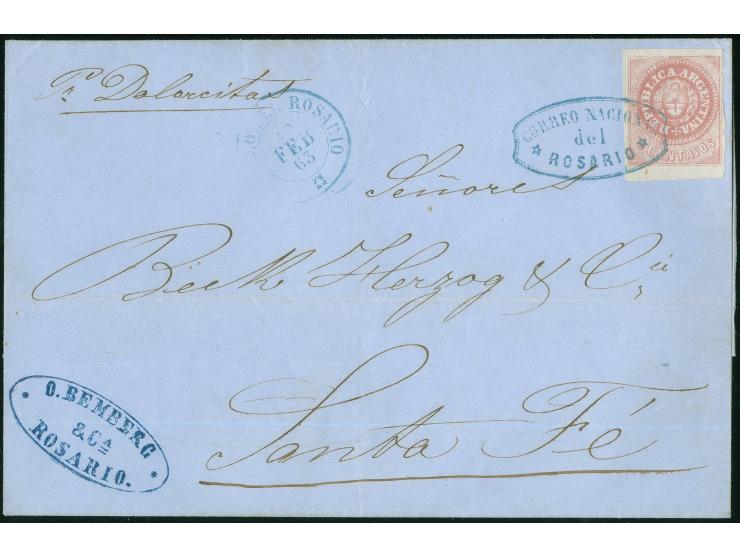 Pr Dolorcitas
ROSARIO
FEB
63
CORREO NACIO
del
ROSARIO
REPUBLICA ARGENTINA
CENTAVOS
Señores
Beck Herzog & Cia
Santa Fé
O. BEMBERG
& CA
ROSARIO.